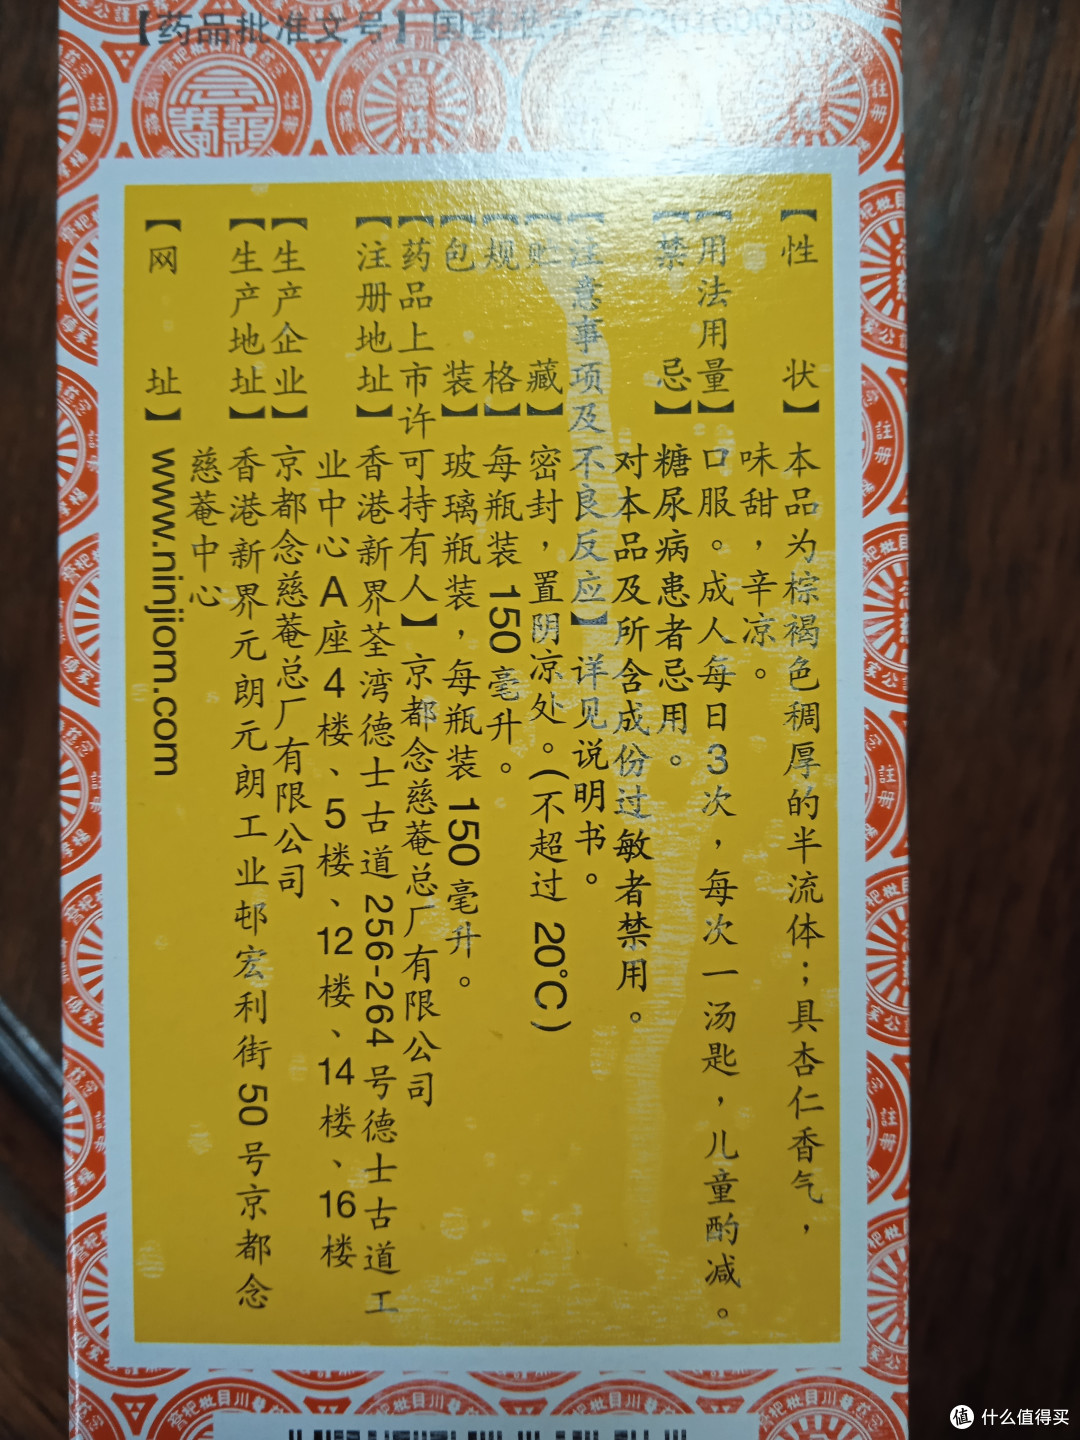 【药品批准文号】国药准字
【性状】本品为棕褐色稠厚的半流体；具杏仁香气，
味甜，辛凉。
【用法用量】口服。成人每日3次，每次一汤匙，儿童酌减。
【禁忌】糖尿病患者忌用。
对本品及所含成份过敏者禁用。
【注意事项及不良反应】详见说明书。
【贮藏】密封，置阴凉处。（不超过 20°C）
【规格】每瓶装 150 毫升。
【包装】玻璃瓶装，每瓶装 150 毫升。
【药品上市许可持有人】京都念慈菴总厂有限公司
【注册地址】香港新界荃湾德士古道 256-264 号德士古道工
业中心 A 座 4 楼、5 楼、12 楼、14 楼、16 楼
【生产企业】京都念慈菴总厂有限公司
【生产地址】香港新界元朗元朗工业邨宏利街 50 号京都念
慈菴中心
【网址】www.ninjiom.com
值 什么值得买